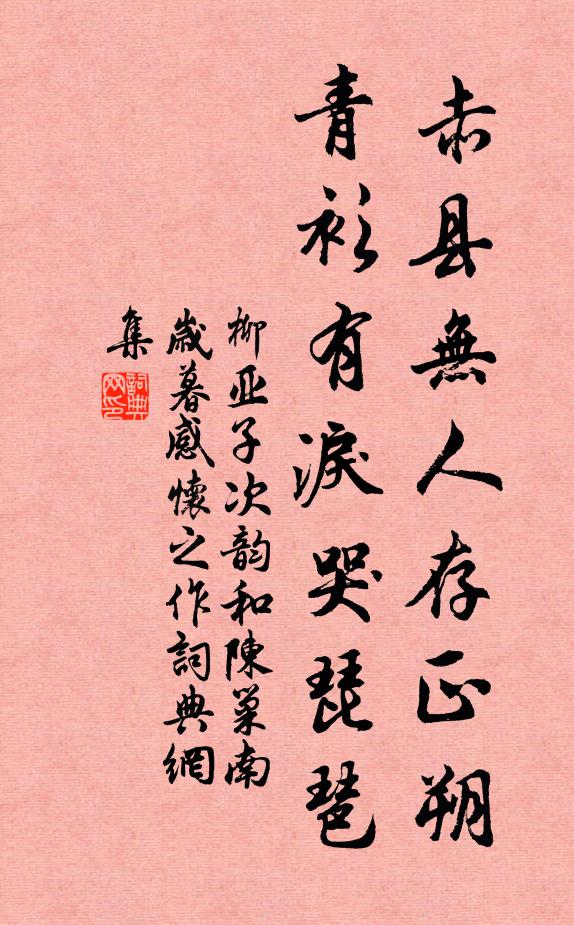 赤县無人存正朔
青衫有淚哭琵琶
柳亚子次韵和陳巢南
歲暮感懷之作詞典網
集
詞典
网印